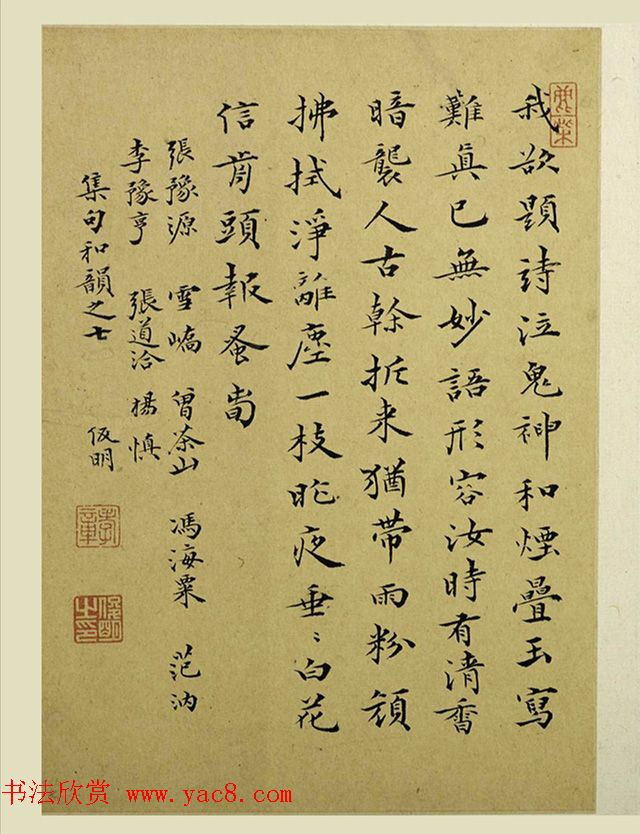 我欲題詩泣鬼神和煙疊玉寫
難真已無妙語形容汝時有清香
暗襲人古幹折来猶帶雨粉顏
拂拭淨離塵一枝昨夜垂〻白花
信歬頭報蚤旾
張豫源 雪嶠 曾茶山 馮海粟 范汭
李豫亨 張道洽 楊慎
集句和韻之七 俊明
孝章
俊明之印
书法欣赏 www.yac8.com